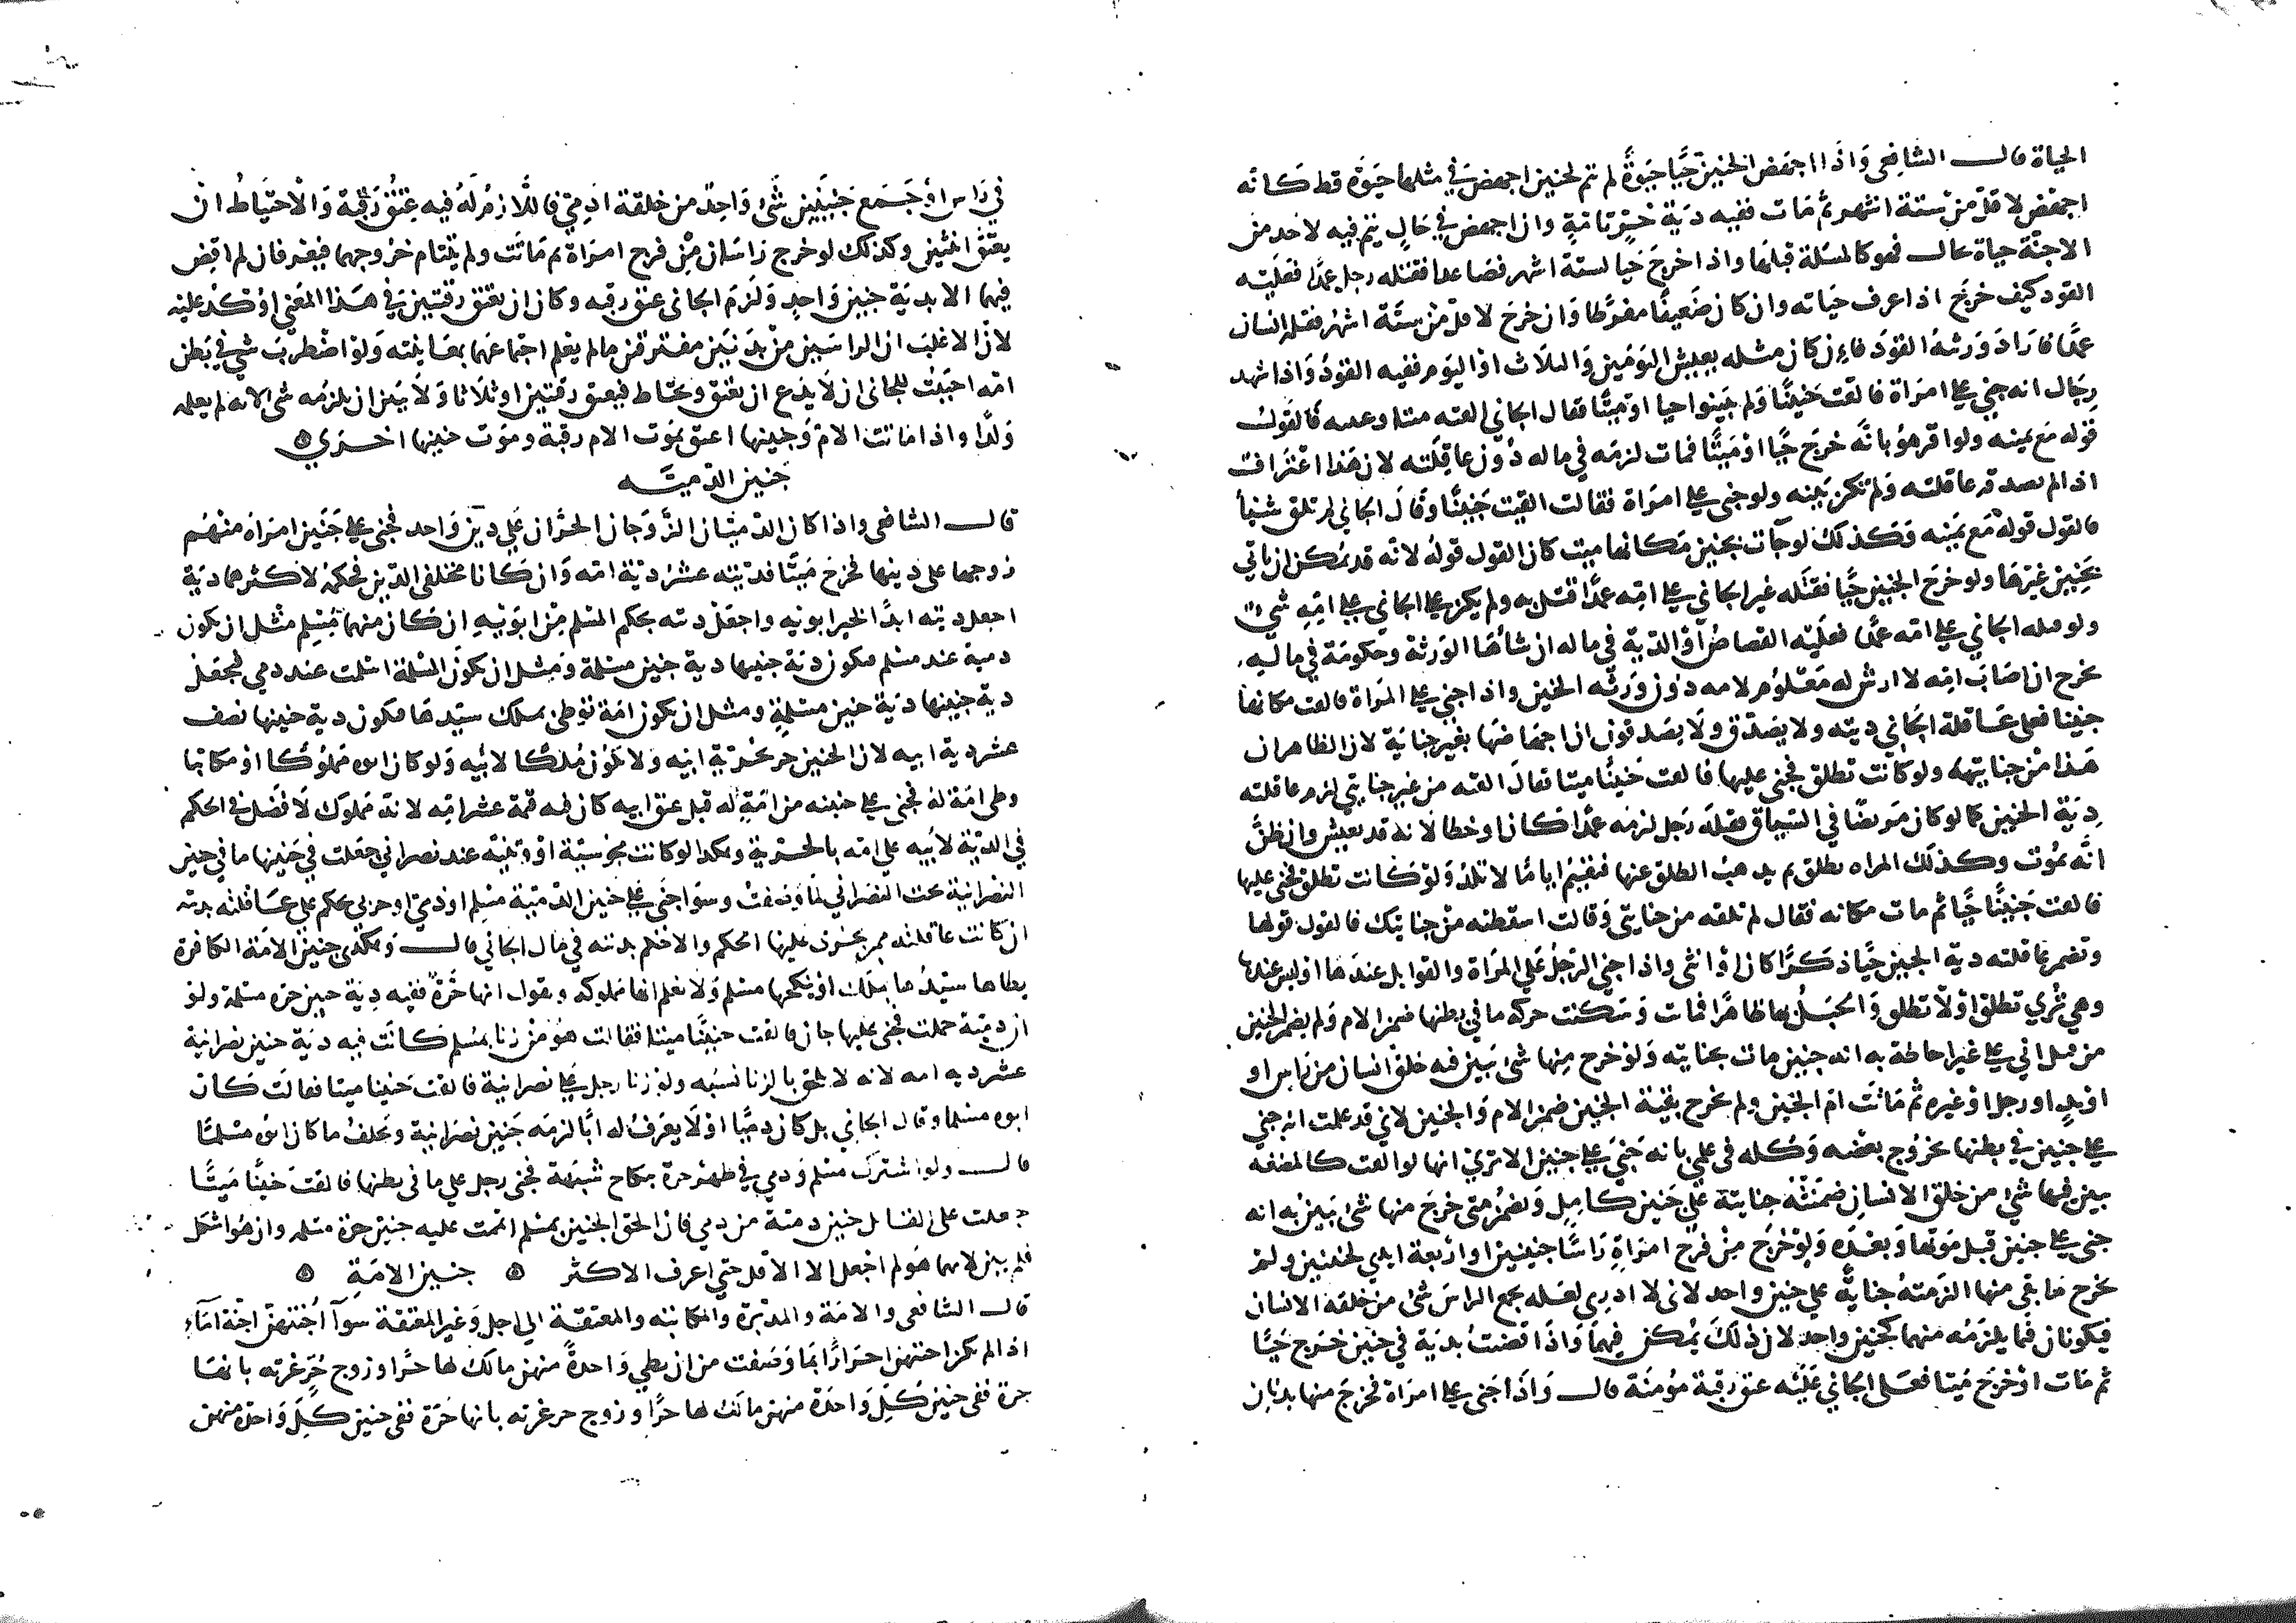 الحياة قال الشافعي واذا اجهض الجنين حيا حيوة لم تتم لجنين اجهض في مثلها حيوة قط كانه
اجهض لاقل من ستة اشهر ثم مات ففيه دية حر تامة وان اجهض في حال يتم فيه لاحد من
الاجنة حياة قال فهو كالمسلة قبلها واذا خرج حيا لستة اشهر فصاعدا فقتله رجل عمدا فعليه
القود كيف خرج اذا عرف حياته وان كان ضعيفا مفرطا وان خرج لاقل من ستة اشهر فقتله انسان
عمدا فاراد ورثه القود فان كان مثله يعيش اليومين والثلاث او اليوم ففيه القود واذا شهد
رجال انه جني على امراة فالقت جنينا ولم يبينوا حيا او ميتا فقال الجاني القته ميتا وعليه فالقول
قوله مع يمينه ولو اقر هو بانه خرج حيا او ميتا فمات لزمه في ماله دون عاقلته لان هذا اعتراف
اذا لم تصدقه عاقلته ولم تكن بينه ولو جنى على امراة فقالت القيت جنينا وقال الجاني لم تلق شيئا
فالقول قوله مع يمينه وكذلك لو جات بجنين مكانها ميت كان القول قوله لانه قد يمكن ان ياتي
بجنين غيرها ولو خرج الجنين حيا فقتله غير الجاني على امه عمدا قتل به ولم يكن على الجاني على امه شي
ولو قتله الجاني على امه عمدا فعليه القصاص او الدية في ماله ان شاها الورثة وحكومة في ماليه
بخرج ان اصاب امه لا ارش له معلوم لامه دون ورثه الجنين واذا جني على المراة فالقت مكانها
جنينا فعلى عاقلة الجاني ديته ولا يصدق ولا يصدقون ان اجهاضها بغير جناية لان الظاهر ان
هذا من جنايته ولو كانت تطلق فجنى عليها فالقت جنينا ميتا فقال القته من غير جنايتي لزم عاقلته
دية الجنين كما لو كان مريضا في السياق فقتله رجل لزمه عمدا كان او خطا لانه قد يعيش وان ظن
انه يموت وكذلك المراه تطلق ثم يذهب الطلق عنها فتقيم اياما لا تلد ولو كانت تطلق فجنى عليها
فالقت جنينا حيا ثم مات مكانه فقال لم تلقه من جنايتي وقالت اسقطته من جنايتك فالقول قولها
وتضمن عاقلته دية الجنين حيا ذكرا كان او انثى واذا جنى الرجل على المراة والقوابل عندها او ليس عندها
وهي ترى تطلق او لا تطلق والحبل بها ظاهرا فماتت وسكنت حركة ما في بطنها ضمن الام ولم يضمن الجنين
من قبل اني على غير احاطة به انه جنين مات بجنايته ولو خرج منها شى يبين فيه خلق انسان من راس او
او يد او رجل او غيره ثم ماتت ام الجنين ولم يخرج بقية الجنين ضمن الام والجنين لاني قد علمت انه جني
على جنين في بطنها بخروج بعضه وكله فى علمي بانه جنى على جنين الا ترى انها لو القت كالمضغه
يبين فيها شي من خلق الانسان ضمنته جناية على جنين كامل ويضمن متى خرج منها شى يبين به انه
جنى على جنين قبل موتها وبعده ولو خرج من فرج امراة راسا جنينين او اربعة ايدي لجنينين ولم
يخرج ما بقي منها الزمته جناية على جنين واحد لانى لا ادرى لعله يجمع الراس شى من خلقه الانسان
فيكونان فما يلزمه منهما كجنين واحد لان ذلك يمكن فيهما واذا قضت بدية في جنين خرج حيا
ثم مات او خرج ميتا فعلى الجاني عليه عتق رقبة مؤمنة قال واذا جنى على امراة فخرج منها بدنان
في راس او جمع جنينين شى واحد من خلقة ادمي فاللازم له فيه عتق رقبة والاحتياط ان
يعتق اثنين وكذلك لو خرج راسان من فرج امراة ثم ماتت ولم يتتام خروجهما فيعرفان لم اقض
فيهما الا بدية جنين واحد ولزم الجانى عتق رقبه وكان ان يعتق رقبتين في هذا المعني اوكد عليه
لان الاغلب ان الراسين من بدنين مفترقين ما لم يعلم اجتماعهما بمعاينته ولو اضطرب شي في بطن
امه احببت للجانى ان لا يدع ان يعتق ويحتاط فيعتق رقبتين او ثلاثا ولا يبين ان يلزمه شى لانه لم يعلمه
ولدا واذا ماتت الام وجنينها اعتق بموت الام رقبة وموت جنينها اخرى
جنين الذميه
قال الشافعي واذا كان الذميان الزوجان الحران على دين واحد فجنى على جنين امراة منهم
زوجها على دينها فخرج ميتا فديته عشر دية امه وان كانا مختلفي الدين فحكمه لاكثرهما دية
اجعل ديته ابدا لخير ابويه واجعل ديته بحكم المسلم من ابويه ان كان منهما مسلم مثل ان تكون
دمية عند مسلم فتكون دية جنينها دية جنين مسلمة ومثل ان تكون المسلمة اسلمت عند دمي فجعل
دية جنينها دية جنين مسلمة ومثل ان تكون امة توطى بملك سيدها فتكون دية جنينها نصف
عشر دية ابيه لان الجنين حر بحرية ابيه ولا تكون ملكا لابيه ولو كان ابوه مملوكا او مكاتبا
وطى امة له فجنى على جنينه من امة له قبل عتق ابيه كان فيه قيمة عشر امه لانه مملوك لا فضل فى الحكم
في الدية لابيه على امه بالحرية وهكذا لو كانت مجوسية او وثنية عند نصراني جعلت في جنينها ما في جنين
النصرانية تحت النصراني لما وصفت وسوا جنى على جنين الذمية مسلم او ذمي او حربي يحكم على عاقلته بديته
ان كانت عاقلته ممن يجري عليها الحكم والا حكم بديته في مال الجاني قال وهكذى جنين الامة الكافرة
يطاها سيدها بملك او ينكحها مسلم ولا نعلم انها مملوكه ويقول انها حرة ففيه دية جنين حره مسلمة ولو
ان دمية حملت فجنى عليها جان فالقت جنينا ميتا فقالت هو من زنا بمسلم كانت فيه دية جنين نصرانية
عشر دية امه لانه لا يلحق بالزنا نسبه ولو زنا رجل على نصرانية فالقت جنينا ميتا فقالت كان
ابوه مسلما وقال الجاني بل كان دميا او لا يعرف له ابا لزمه جنين نصرانية ويحلف ما كان ابوه مسلما
قال ولو اشترك مسلم ودمي في طهر حرة بنكاح شبهة فجنى رجل على ما فى بطنها فالقت جنينا ميتا
جعلت على القاتل جنين دمية من دمي فان الحق الجنين بمسلم اتممت عليه جنين حرة مسلمه وان هو اشكل
فلم يبن لايهما هو لم اجعل الا الاقل حتي اعرف الاكثر ۞ جنين الامة ۞
قال الشافعى والامة والمدبرة والمكاتبه والمعتقة الى اجل وغير المعتقة سوآ اجنتهن اجنة اماء
اذا لم تكن اجنتهن احرارا بما وصفت من ان يطي واحدة منهن مالك لها حر او زوج حر غرته بانها
حرة ففى جنين كل واحدة منهن مالك لها حرا و زوج حر غرته بانها حرة ففى جنين كل واحدة منهن